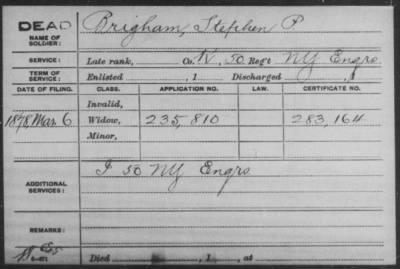 DEAD Brigham, Stephen P
NAME OF SOLDIER:
SERVICE: Late rank, Co. K, 50 Regt NY Engrs
TERM OF SERVICE: Enlisted , 1 Discharged , 1
DATE OF FILING. CLASS. APPLICATION NO. LAW. CERTIFICATE NO.
Invalid,
1878, Mar 6 Widow, 235,810 283,164
Minor,
ADDITIONAL SERVICES: I 50 NY Engrs
REMARKS:
Died , 1 , at